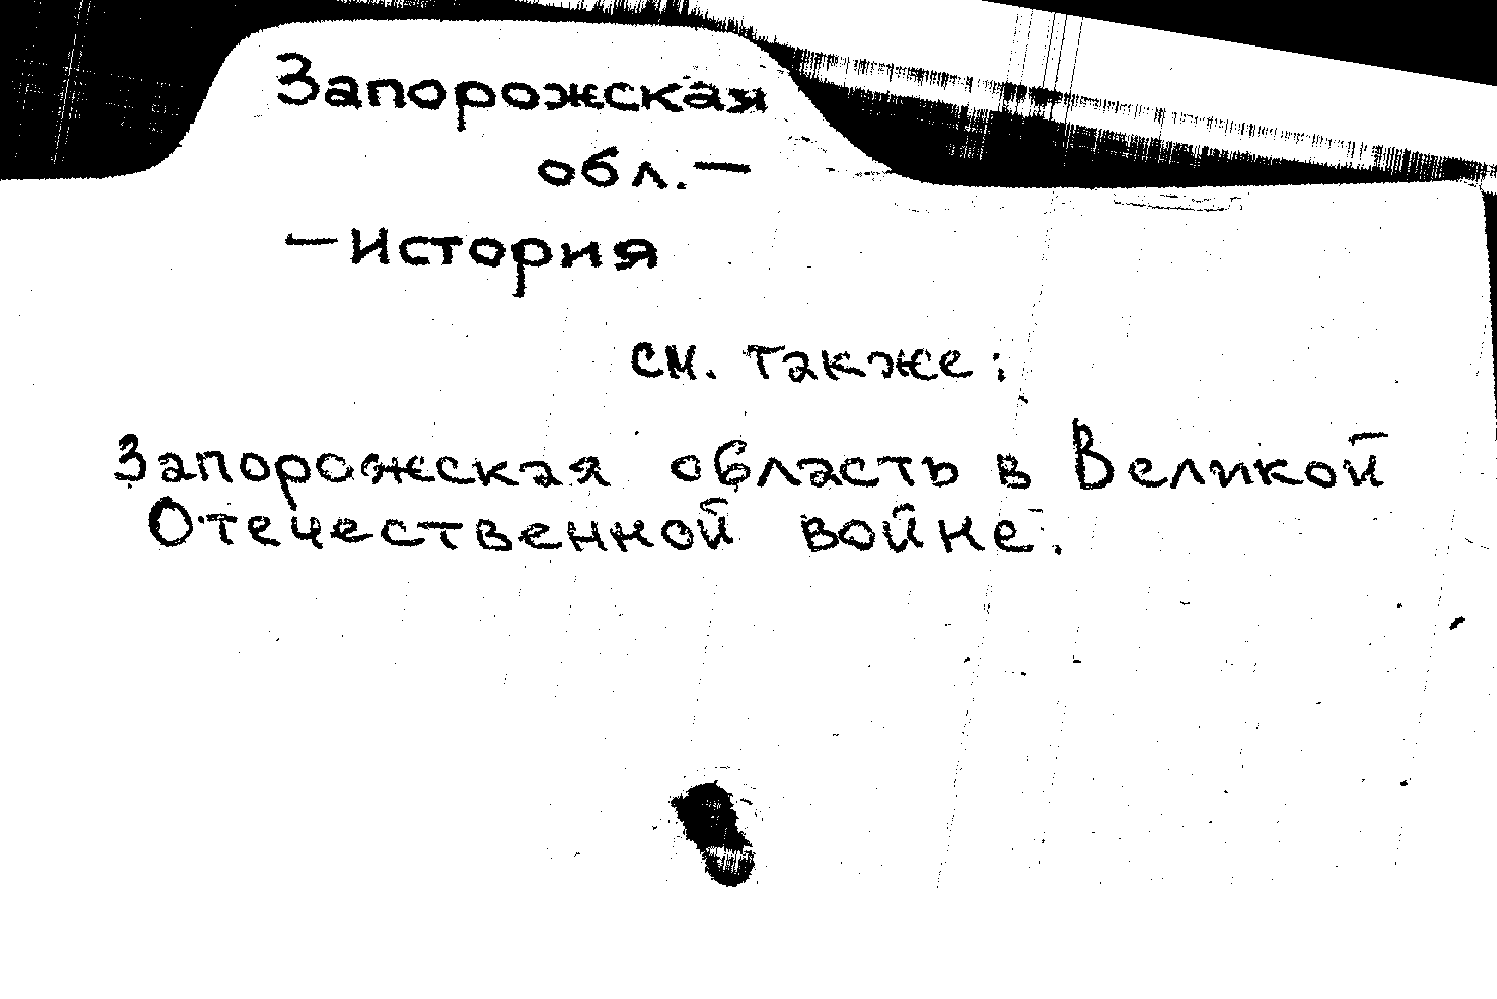 Запорожская
обл. —
— история
см. также:
Запорожская область в Великой
Отечественной войне.